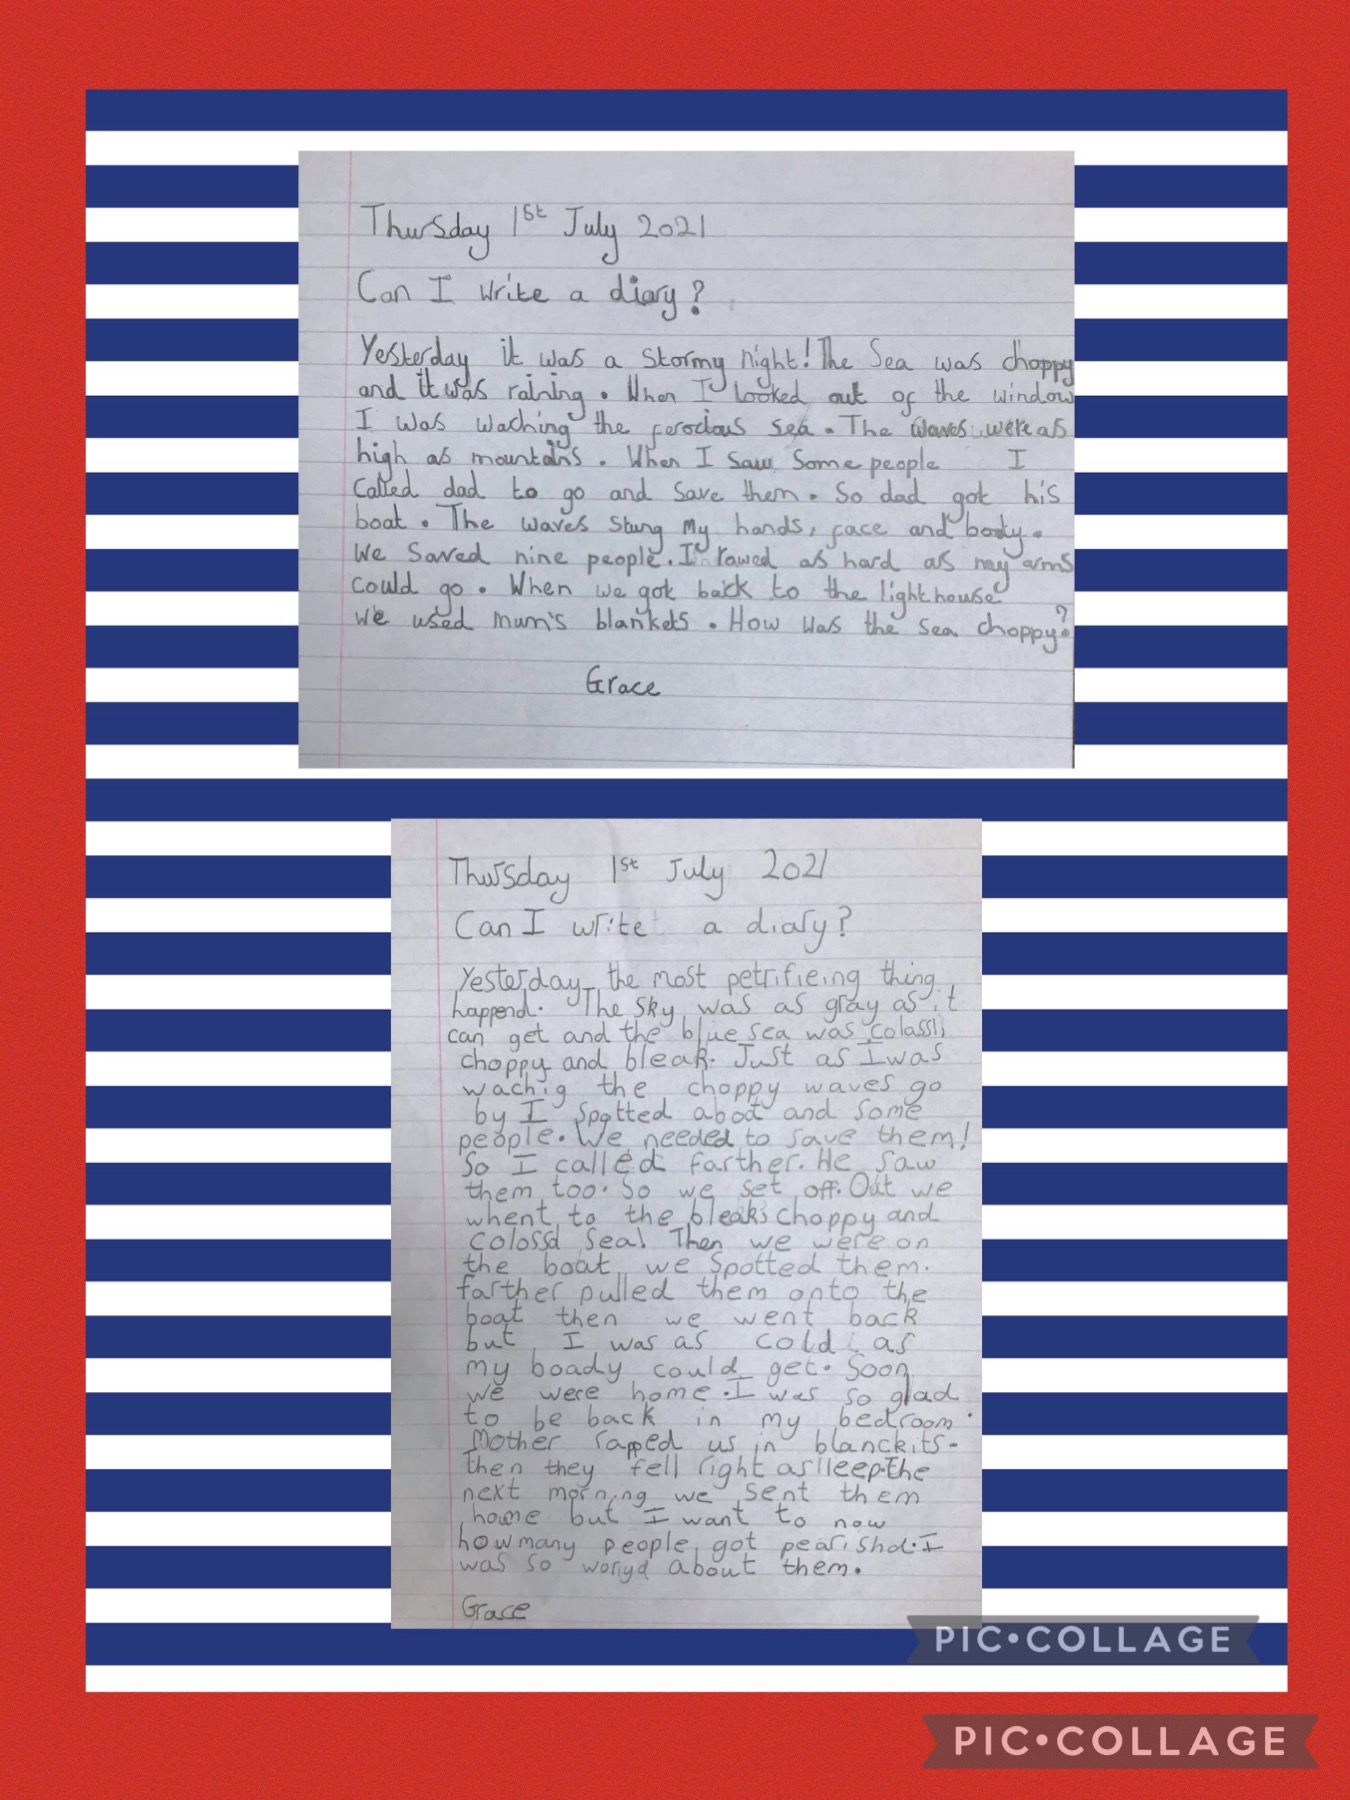 Thursday 1st July 2021
Can I write a diary?
Yesterday it was a stormy night! The Sea was choppy
and it was raining. When I looked out of the window
I was waching the ferocious sea. The waves were as
high as mountains. When I saw some people I
called dad to go and save them. So dad got his
boat. The waves stung my hands, face and body.
We saved nine people. I rowed as hard as my arms
could go. When we got back to the lighthouse
we used mum's blankets. How was the sea choppy?
Grace
Thursday 1st July 2021
Can I write a diary?
Yesterday the most petrifieing thing
happend. The sky was as gray as it
can get and the blue sea was
choppy and bleak. Just as I was
wachig the choppy waves go
by I spotted aboat and some
people. We needed to save them!
So I called farther. He saw
them too. So we set off. Out we
whent to the choppy and
sea! Then we were on
the boat we spotted them.
farther pulled them onto the
boat then we went back
but I was as cold as
my boady could get. Soon
we were home. I was so glad
to be back in my bedroom.
Mother rapped us in blanckits.
then they fell right aslleep. the
next morning we sent them
home but I want to now
howmany people got pearishd. I
was so about them.
Grace
PIC•COLLAGE
PIC•COLLAGE